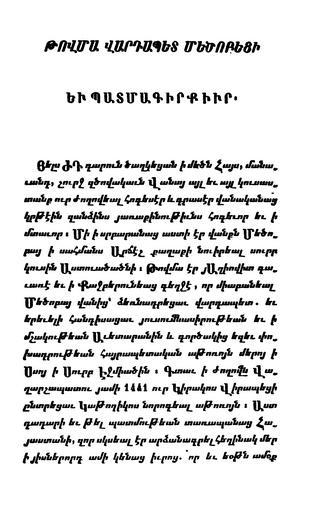 ԹՈՎՄԱ ՎԱՐԴԱՊԵՏ ՄԵԾՈԲԵՑԻ
ԵՒ ՊԱՏՄԱԳԻՐՔ ԻՒՐ.
Ցելս ԺԴ դարուն ծաղկեցան ի մեծն Հայս, մանա-
ւանդ, շուրջ զծովակաւն Վանայ այլ եւ այլ կուսաս-
տանք ուր ժողովեալ հոգեսէր եւ դրասէր վանականաց
կրթէին զանձինս յառաքինութիւնս հոգեւոր եւ ի
մտաւոր ։ Մի ի սրբարանաց աստի էր վանքն Մեծո-
բայ ի սահմանս Արճէշ քաղաքի նուիրեալ սուրբ
կուսին Աստուածածնի ։ Թովմա էր յԱղիովիտ գա-
ւառէ եւ ի Քաջբերունեաց գեղջէ, որ միաբանեալ
Մեծոբայ վանից՝ ձեռնադրեցաւ վարդապետ. եւ
երեւելի հանդիսացաւ յուսումնասիրութեան եւ ի
մշակութեան Աւետարանին եւ գործակից եղեւ փո-
խադրութեան հայրապետական աթոռոյն մերոյ ի
Սսոյ ի Սուրբ Էջմիածին ։ Գտաւ ի ժողովն Վա-
ղարշապատու յամի 1441 ուր Կիրակոս Վիրապեցի
ընտրեցաւ Կաթողիկոս նորոգեալ աթոռոյն ։ Աստ
դադարի եւ թել պատմութեան տառապանաց Հա-
յաստանի, զոր սկսեալ էր արձանագրել հեղինակ մեր
ի յիսներորդ ամի կենաց իւրոց. որ եւ եօթն ամօք